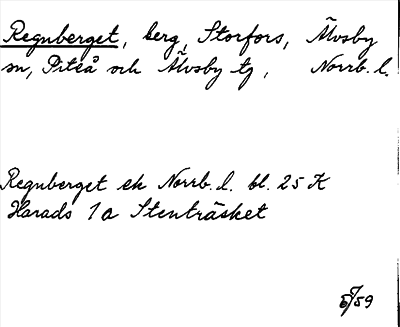 Regnberget, berg, Storfors, Älvsby
sn, Piteå och Älvsby tg, Norrb. l.
Regnberget ek Norrb. l. bl. 25 K
Harads 1a Stenträsket
59